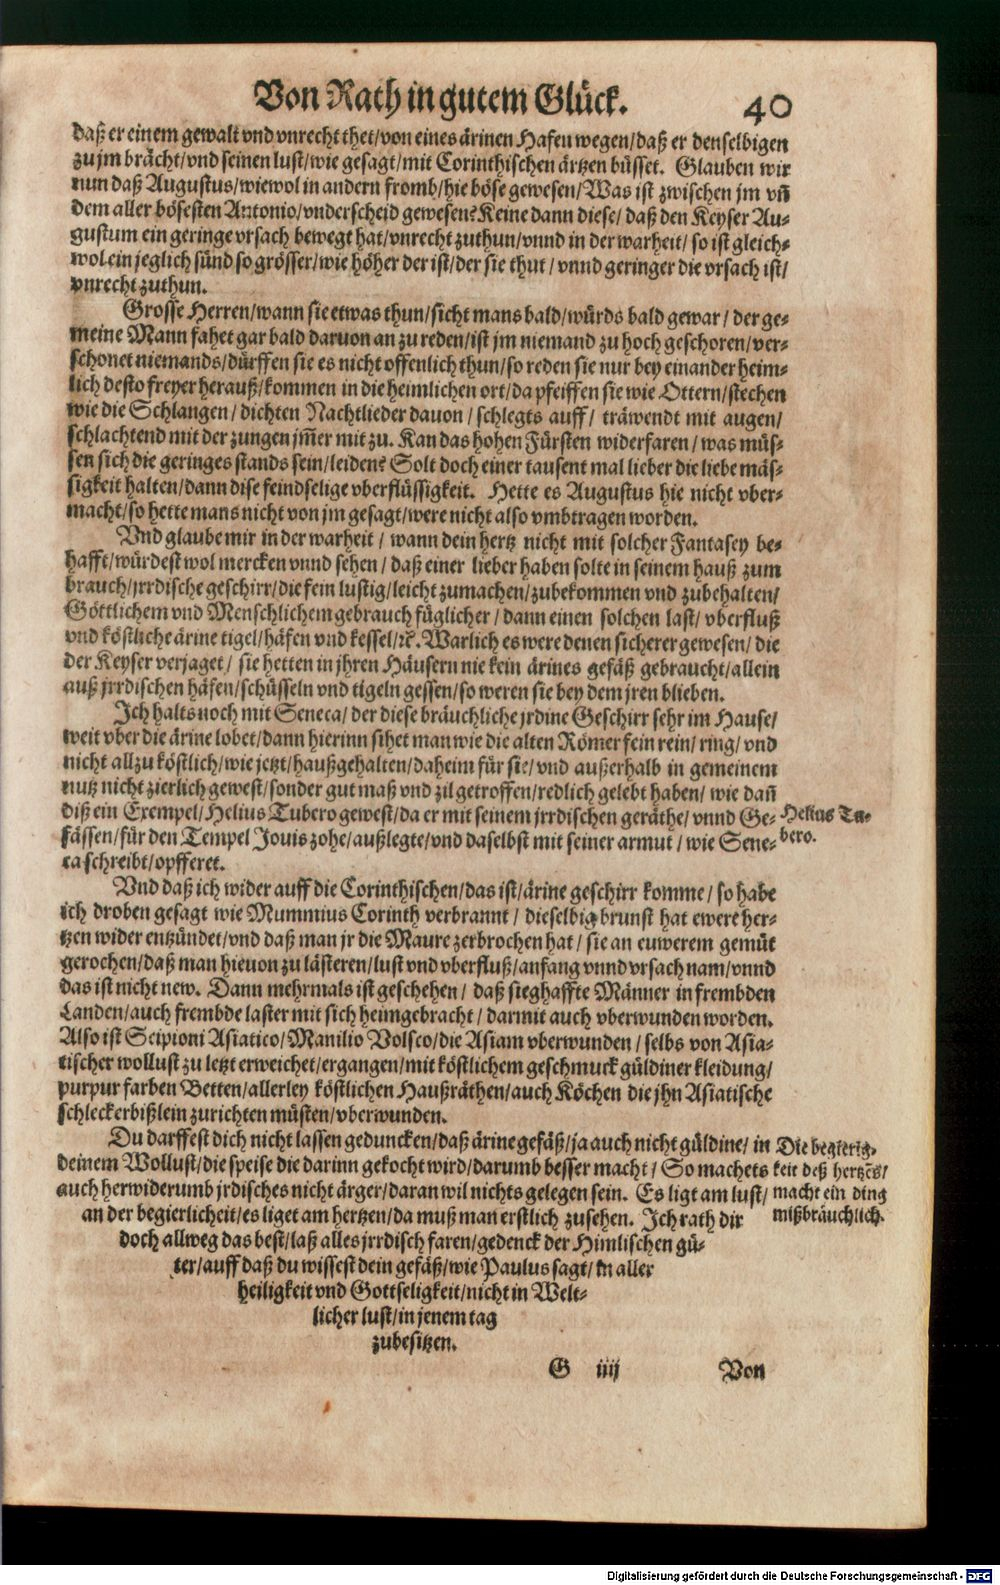 Von Rath in gutem Glück.
40
daß er einem gewalt vnd vnrecht thet/von eines ärinen Hafen wegen/daß er denselbigen
zu jm brächt/vnd seinen lust/wie gesagt/mit Corinthischen ärtzen büsset. Glauben wir
nun daß Augustus/wiewol in andern fromb/hie böse gewesen/Was ist zwischen jm vñ
dem aller bösesten Antonio/vnderscheid gewesen? Keine dann diese/ daß den Keyser Au-
gustum ein geringe vrsach bewegt hat/vnrecht zuthun/vnnd in der warheit/ so ist gleich-
wol ein jeglich sünd so grösser/wie höher der ist/der sie thut/vnnd geringer die vrsach ist/
vnrecht zuthun.
Grosse Herren/wann sie etwas thun/sicht mans bald/würds bald gewar/ der ge-
meine Mann fahet gar bald daruon an zu reden/ist jm niemand zu hoch geschoren/ver-
schonet niemands/dürffen sie es nicht offenlich thun/so reden sie nur bey einander heim-
lich desto freyer herauß/kommen in die heimlichen ort/da pfeiffen sie wie Ottern/stechen
wie die Schlangen/ dichten Nachtlieder dauon/ schlegts auff/ träwendt mit augen/
schlachtend mit der zungen jm̃er mit zu. Kan das hohen Fürsten widerfaren/ was müs-
sen sich die geringes stands sein/leiden? Solt doch einer tausent mal lieber die liebe mäs-
sigkeit halten/dann dise feindselige vberflüssigkeit. Hette es Augustus hie nicht vber-
macht/so hette mans nicht von jm gesagt/were nicht also vmbtragen worden.
Vnd glaube mir in der warheit/ wann dein hertz nicht mit solcher Fantasey be-
hafft/würdest wol mercken vnnd sehen/ daß einer lieber haben solte in seinem hauß zum
brauch/jrrdische geschirr/die fein lustig/leicht zumachen/zubekommen vnd zubehalten/
Göttlichem vnd Menschlichem gebrauch füglicher/dann einen solchen last/vberfluß
vnd köstliche ärine tigel/häfen vnd kessel/ꝛc. Warlich es were denen sicherer gewesen/ die
der Keyser verjaget/ sie hetten in jhren Häusern nie kein ärines gefäß gebraucht/allein
auß jrrdischen häfen/schüsseln vnd tigeln gessen/so weren sie bey dem jren blieben.
Ich halts noch mit Seneca/ der diese bräuchliche jrdine Geschirr sehr im Hause/
weit vber die ärine lobet/dann hierinn sihet man wie die alten Römer fein rein/ ring/ vnd
nicht allzu köstlich/wie jetzt/haußgehalten/daheim für sie/ vnd außerhalb in gemeinem
nutz nicht zierlich gewest/sonder gut maß vnd zil getroffen/redlich gelebt haben/ wie dañ
diß ein Exempel/Helius Tubero gewest/da er mit seinem jrrdischen geräthe/ vnnd Ge-
fässen/für den Tempel Jouis zohe/außlegte/vnd daselbst mit seiner armut/ wie Sene-
ca schreibt/opfferet.
Helius Tu-
bero.
Vnd daß ich wider auff die Corinthischen/das ist/ärine geschirr komme/ so habe
ich droben gesagt wie Mummius Corinth verbrannt/ dieselbig brunst hat ewere her-
tzen wider entzündet/vnd daß man jr die Maure zerbrochen hat/ sie an euwerem gemüt
gerochen/daß man hieuon zu lästeren/lust vnd vberfluß/anfang vnnd vrsach nam/vnnd
das ist nicht new. Dann mehrmals ist geschehen/ daß sieghaffte Männer in frembden
Landen/auch frembde laster mit sich heimgebracht/ darmit auch vberwunden worden.
Also ist Scipioni Asiatico/Manilio Volsco/die Asiam vberwunden/ selbs von Asia-
tischer wollust zu letzt erweichet/ergangen/mit köstlichem geschmuck güldiner kleidung/
purpur farben Betten/allerley köstlichen Haußräthen/auch Köchen die jhn Asiatische
schleckerbißlein zurichten müsten/vberwunden.
Du darffest dich nicht lassen geduncken/daß ärine gefäß/ja auch nicht güldine/ in
deinem Wollust/die speise die darinn gekocht wird/darumb besser macht/ So machets
auch herwiderumb jrdisches nicht ärger/daran wil nichts gelegen sein. Es ligt am lust/
an der begierlicheit/es liget am hertzen/da muß man erstlich zusehen. Ich rath dir
doch allweg das best/laß alles jrrdisch faren/gedenck der Himlischen gü-
ter/auff daß du wissest dein gefäß/wie Paulus sagt/ in aller
heiligkeit vnd Gottseligkeit/nicht in Welt-
licher lust/in jenem tag
zubesitzen.
Die begierig-
keit deß hertzẽs/
macht ein ding
mißbräuchlich.
G iiij
Von
Digitalisierung gefördert durch die Deutsche Forschungsgemeinschaft - DFG